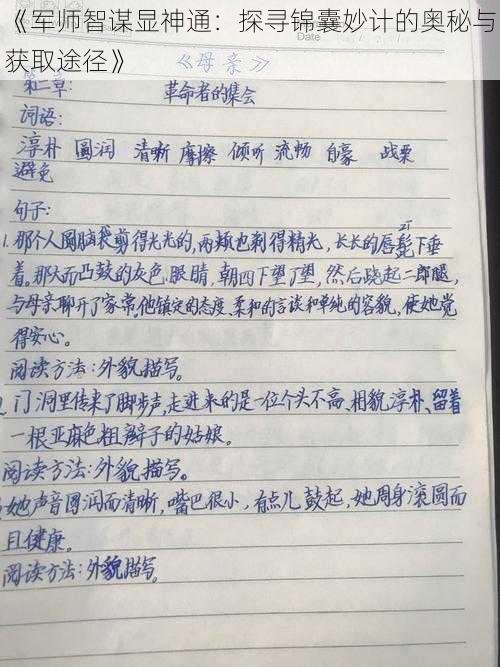 《军师智谋显神通：探寻锦囊妙计的奥秘与
获取途径》
《母亲》
第二章： 革命者的集会
词语：
淳朴 圆润 清晰 摩擦 倾听 流畅 自豪 战栗
避免
句子：
1. 那个人圆脑袋剪得光光的，两颊也剃得精光，长长的唇髭下垂
着，那大而凸鼓的灰色眼睛，朝四下望了望，然后跷起二郎腿，
与母亲聊开了家常，他镇定的态度、柔和的言谈和单纯的容貌，使她觉
得安心。
阅读方法：外貌描写。
2. 门洞里传来了脚步声，走进来的是一位个头不高、相貌淳朴、留着
一根亚麻色粗辫子的姑娘。
阅读方法：外貌描写。
她声音圆润而清晰，嘴巴很小，有点儿鼓起，她周身滚圆而
且健康。
阅读方法：外貌描写。